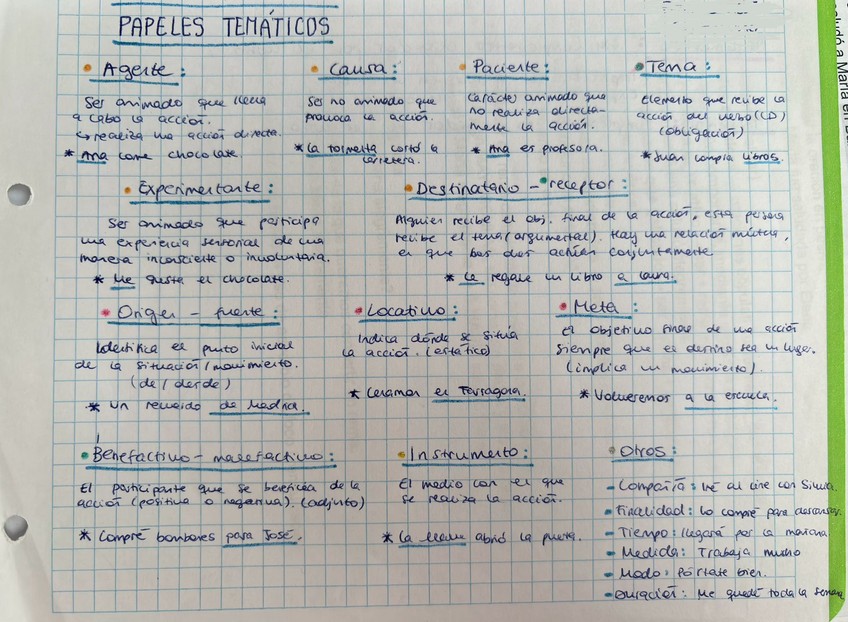 PAPELES TEMÁTICOS
Agente:
Ser animado que lleva
a cabo la acción.
↳ realiza una acción directa.
* Ana come chocolate.
Causa:
Ser no animado que
provoca la acción.
* La tormenta cortó la
carretera.
Paciente:
Carácter animado que
no realiza directa-
mente la acción.
* Ana es profesora.
Tema:
Elemento que recibe la
acción del verbo (CD)
(obligación)
* Juan compra libros.
Experimentante:
Ser animado que participa
una experiencia sensorial de una
manera inconsciente o involuntaria.
* Me gusta el chocolate.
Destinatario - receptor:
Alguien recibe el obj. final de la acción, esta persona
recibe el tema (argumental). Hay una relación mútua,
en que los dos actúan conjuntamente
* Le regalé un libro a Laura.
Origen - fuente:
Identifica el punto inicial
de la situación / movimiento.
(de / desde)
* Un recuerdo de Madrid.
Locativo:
Indica dónde se sitúa
la acción. (estático)
* Cenamos en Tarragona.
Meta:
El objetivo final de una acción
siempre que el destino sea un lugar.
(implica un movimiento).
* Volveremos a la escuela.
Benefactivo - malefactivo:
El participante que se beneficia de la
acción (positiva o negativa). (adjunto)
* Compré bombones para José.
Instrumento:
El medio con el que
se realiza la acción.
* La llave abrió la puerta.
Otros:
- Compañía: Iré al cine con
- Finalidad: Lo compré para descansar.
- Tiempo: llegará por la mañana.
- Medida: Trabaja mucho
- Modo: Pórtate bien.
- Duración: Me quedé toda la semana
saludó a María en